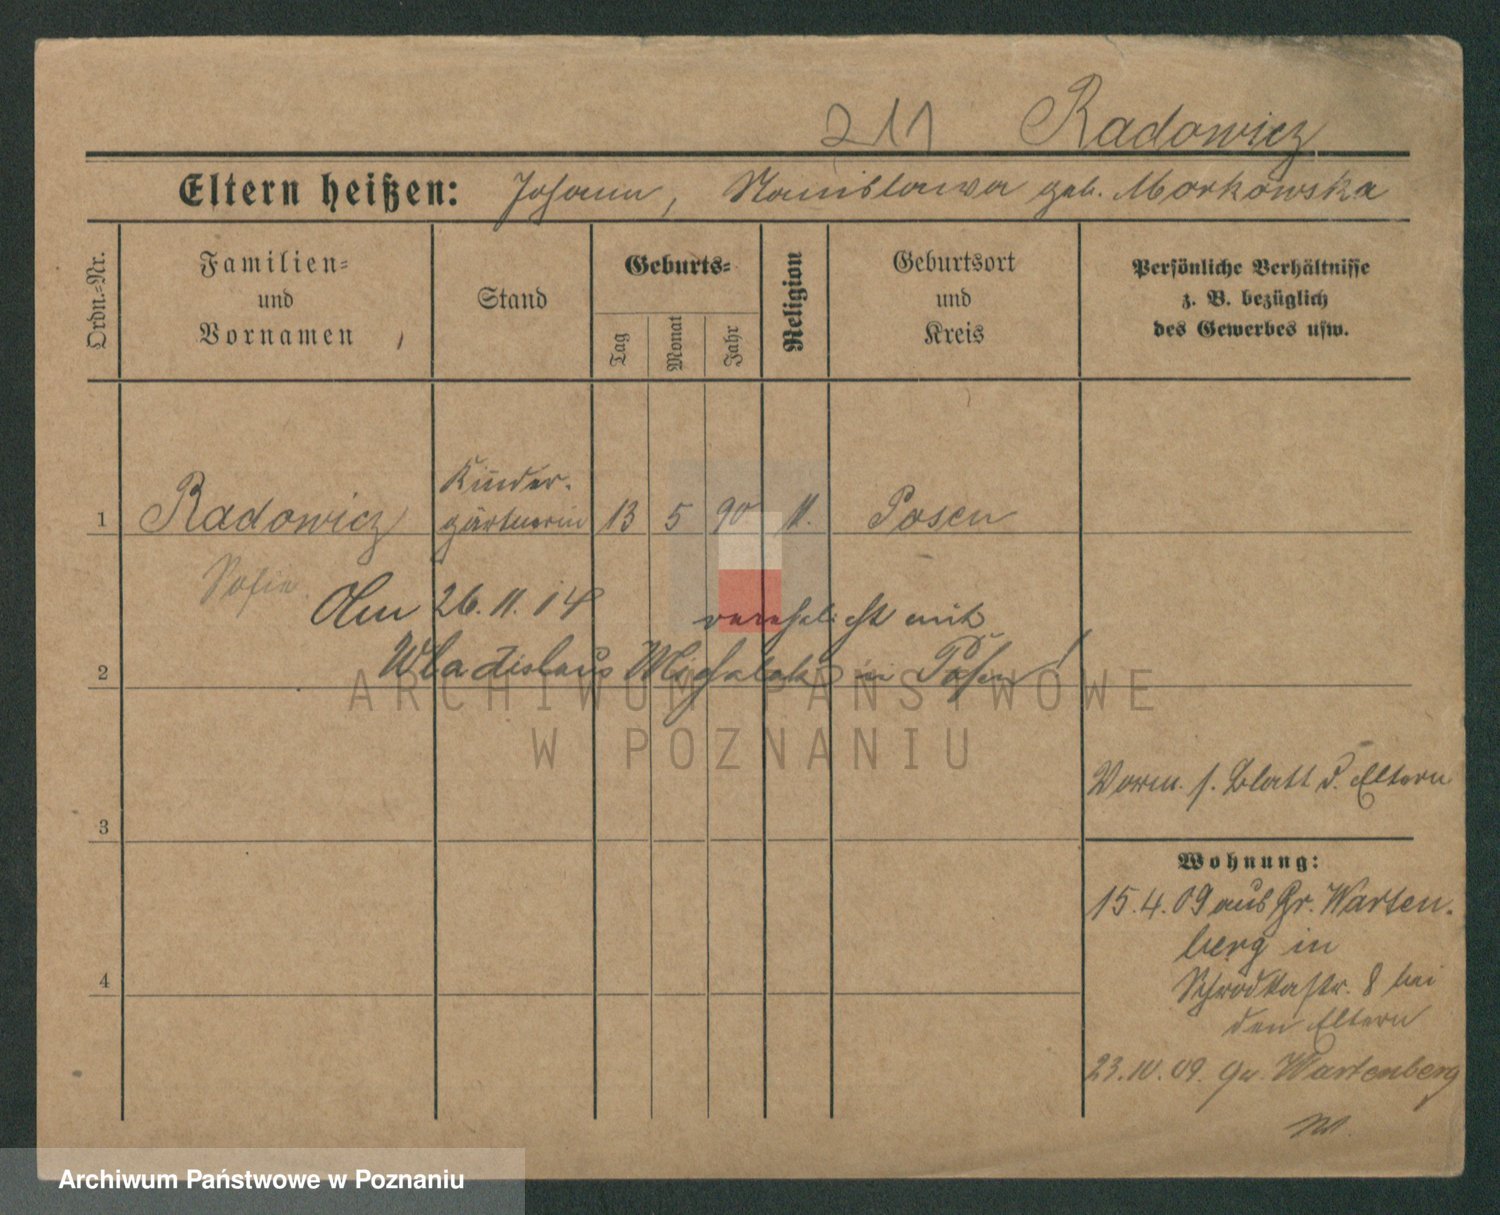 211 Radowicz
Eltern heißen: Johann, Stanislawa geb. Morkowska
Ordn.-Nr.
Familien-
und
Vornamen
Stand
Geburts-
Tag
Monat
Jahr
Religion
Geburtsort
und
Kreis
Persönliche Verhältnisse
z. B. bezüglich
des Gewerbes usw.
Kinder-
1 Radowicz gärtnerin 13 5 90 Posen
Sofie
Am 26.11.14 verehelicht mit
Wladislaus Michalak in Posen!
2
ARCHIWUM PAŃSTWOWE
W POZNANIU
Vorm. s. Blatt d. Eltern
3
Wohnung:
15.4.09 aus Gr. Warten-
berg in
4
Schrodkastr. 8 bei
den Eltern
23.10.09. Gr. Wartenberg
Archiwum Państwowe w Poznaniu